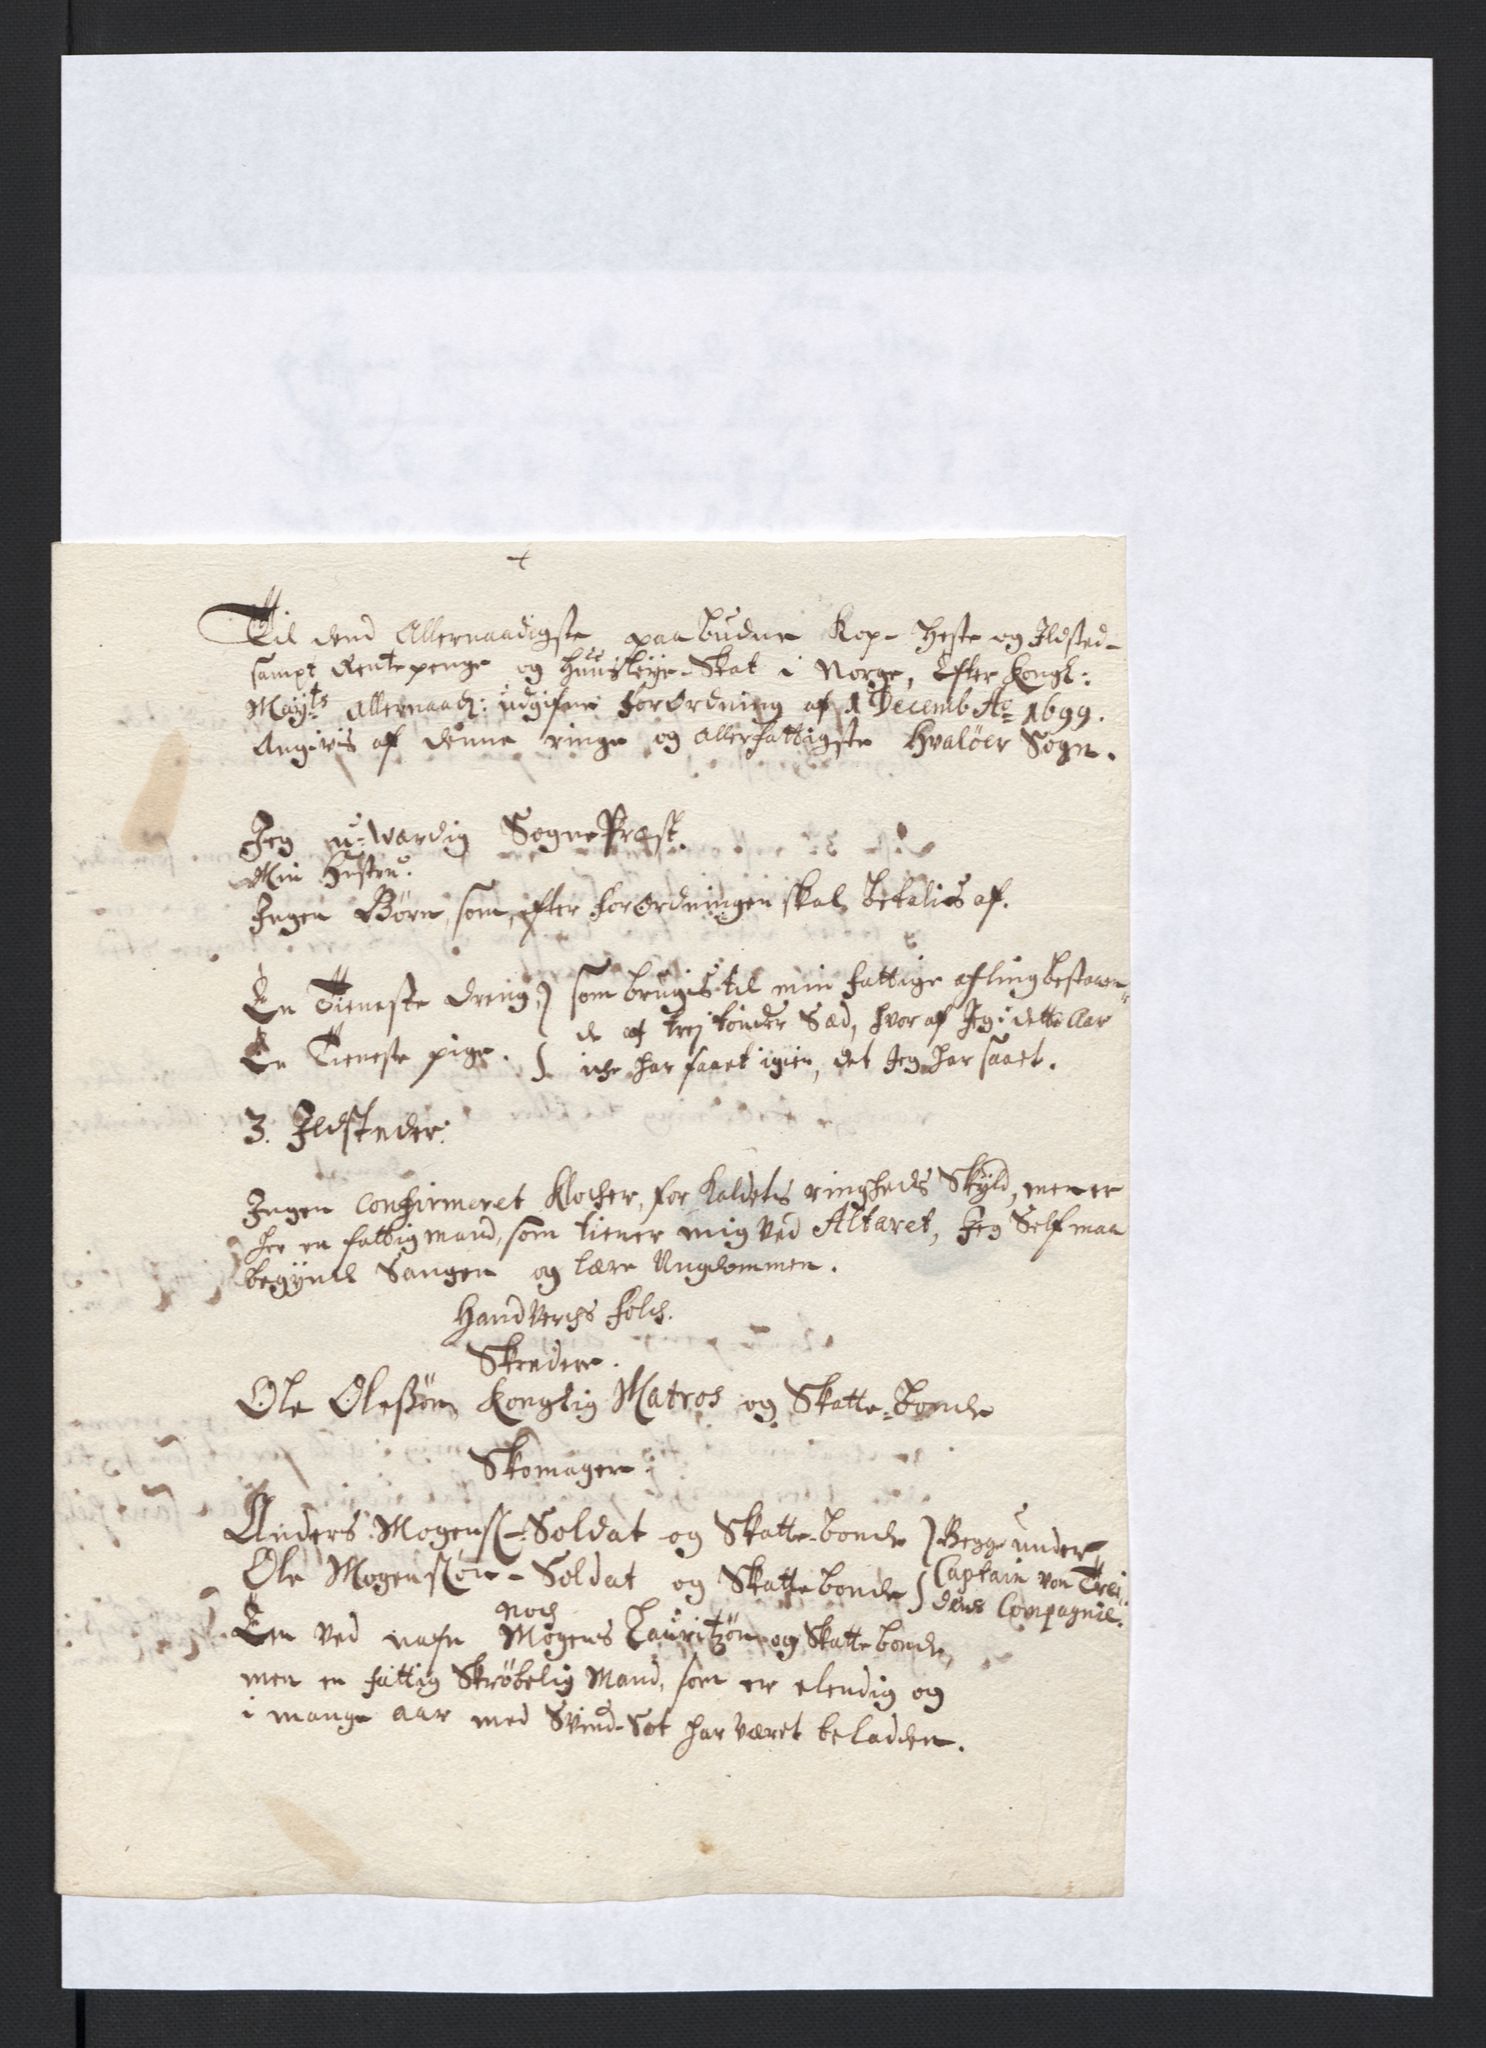 +
Til dend Allernaadigste paabudne Kop- Heste og Ildsted-
sampt Rentepenge og Huusleye-Skat i Norge, Efter Kongl:
Mayts Allernaad: udgifne forordning af 1 Decemb Ao 1699.
Angivis af denne ringe og Allerfattigste Hvaløer Sogn.
Jeg u-wærdig SognePræst.
Min Hustru.
Ingen Børn, som efter forordningen skal betalis af.
En Tieneste dreng,) som brugis til min fattige afling bestaaen-
de af trej tønder Sæd, hvor af Jeg i dette Aar
En Tieneste pige. } iche har faaet igien, det Jeg har saaet.
3. Ildsteder:
Ingen Confirmeret Klocker, for kaldets ringheds Skyld, men er
her en fattig mand, som tiener mig ved Altaret, Jeg Self maa
begynde Sangen og lære Ungdommen.
Handverchs folch.
Skreder.
Ole Olessøn Konglig Matros og Skatte-bonde
Skomager:
Anders Mogens-Soldat og Skatte-bonde } Begge under
Ole Mogenssøn-Soldat og Skattebonde } Captain von Trei
dens Compagnie.
noch
En ved nafn Mogens Lauritzøn og Skattebonde,
men en fattig Skrøbelig Mand, som er elendig og
i mange aar med Svind-Sot har været beladden.